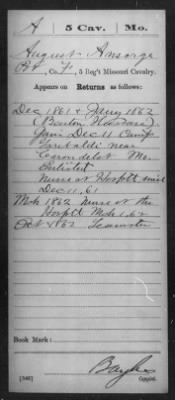 A 5 Cav. Mo.
August Ansorge
Pvt, Co. F, 5 Reg't Missouri Cavalry.
Appears on
Returns as follows:
Dec 1861 & Jany 1862
(Benton Hussars).
Dec 11 Camp
near
Carondelet Mo.
Enlisted
Nurse at Hosptl since
Dec 11, 61
Mch 1862 Nurse at the
Hosptl Mch 1, 62
Oct 1862 Teamster
Book Mark:
(546)
Copyist.